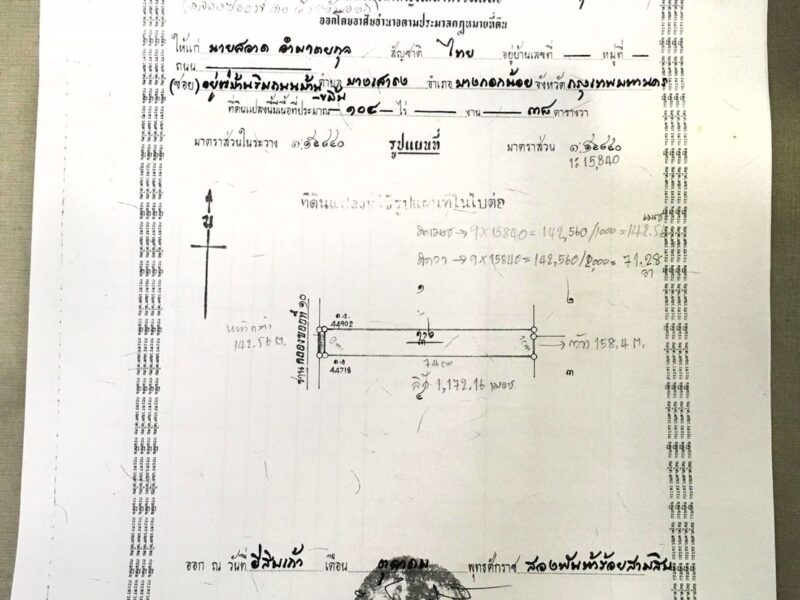 ออกโดยอาศัยอำนาจตามประมวลกฎหมายที่ดิน
ให้แก่ นายสอาด อำมาตยกุล สัญชาติ ไทย อยู่บ้านเลขที่ — หมู่ที่ —
ถนน
(ซอย) ตำบล บางเสาธง อำเภอ บางกอกน้อย จังหวัด กรุงเทพมหานคร
ที่ดินแปลงนี้มีเนื้อที่ประมาณ ๑๐๔ ไร่ — งาน — ๓๘ ตารางวา
มาตราส่วนในระวาง ๑:๑๕๘๔๐ รูปแผนที่ มาตราส่วน ๑:๑๕๘๔๐
1:15,840
น
ที่ดินแปลงนี้ใช้รูปแผนที่ในใบต่อ
คิดเมตร → 9 x 15840 = 142,560/1000 = 142.56
เมตร
คิดวา → 9 x 15840 = 142,560/2,000 = 71.28
วา
๑
๒
หน้ากว้าง
142.56 ม.
คลองซอยที่ ๑๐
ค.ง.
44902
ค.ง.
44718
74 cm
กว้าง 158.4 ม.
ลึก 1,172.16 เมตร.
๓
ออก ณ วันที่ ยี่สิบเก้า เดือน ตุลาคม พุทธศักราช สองพันห้าร้อยสามสิบ